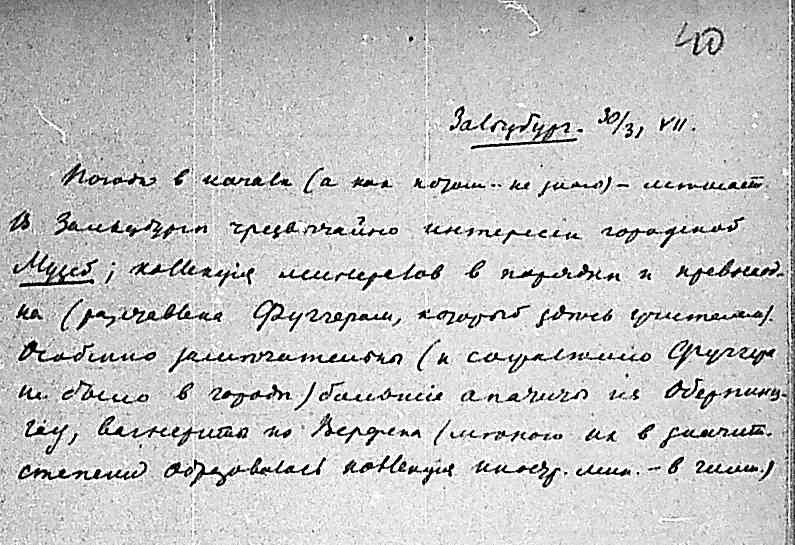 40
Зальцбург. 30/31 VII.
Погода в начале (а как потом - не знаю) - мешает.
В Зальцбурге чрезвычайно интересен городской
Музей; коллекция минералов в порядке и превосход-
на (разставлена Фуггером, который здесь учителем).
Особенно замечательны (к сожалению Фуггера
не было в городе) большие апатиты из Оберпинц-
гау, вагнериты из Верфена (на в значит.
степени образовалась коллекция иностр. мин. - в гимн.)